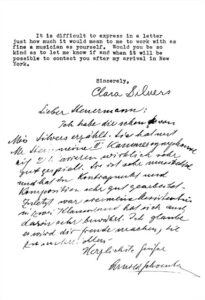 It is difficult to express in a letter
just how much it would mean to me to work with as
fine a musician as yourself. Would you be so
kind as to let me know if and when it will be
possible to contact you after my arrival in New
York.
Sincerely,
Clara Silvers
Lieber Steuermann:
Ich habe die schon von
Miss Silvers erzählt. Sie hat mit
meine II Kammersymphonie
wirklich sehr
gut gespielt. Sie ist sehr musikalisch
und hat im Kontrapunkt und
Komposition sehr gut gearbeitet.
Zuletzt war sie meine Assistentin
in zwei Klassen und hat sich auch
darin sehr bewährt. Ich glaube
es wird dir Freude machen, sie
Herzlichste Grüße
Arnold Schoenberg